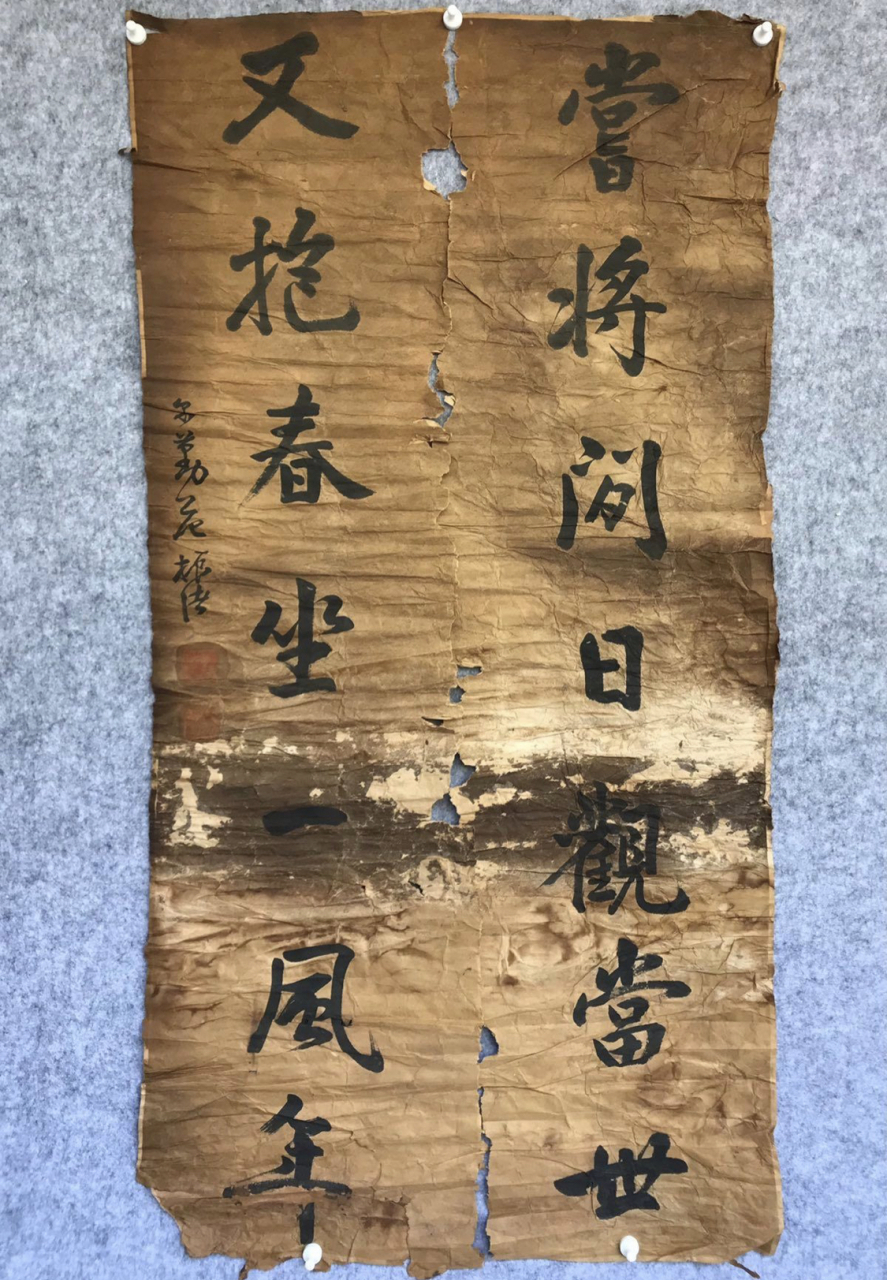 嘗將閒日觀當世
又抱春坐一風年